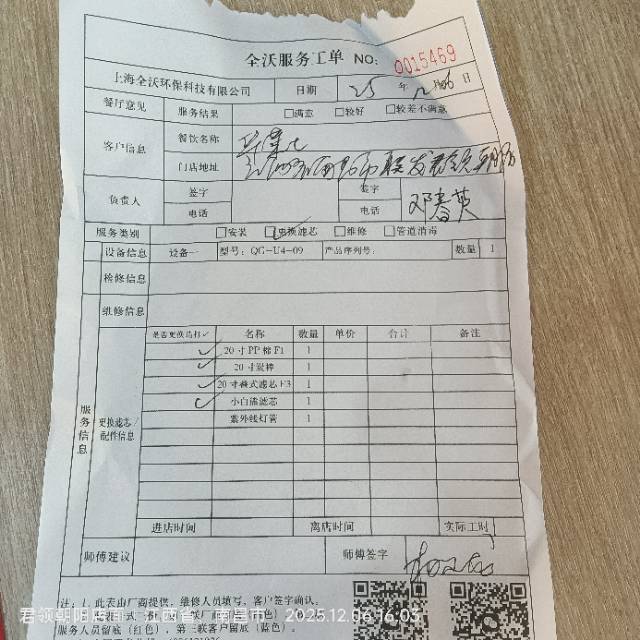 全沃服务工单 NO: 0015469
上海全沃环保科技有限公司 日期 25 年 12 月 06 日
餐厅意见 服务结果 □满意 □较好 □较差不满意
客户信息 餐饮名称
门店地址
负责人 签字 签字
电话 电话 邓春英
服务类别 □安装 □更换滤芯 □维修 □管道消毒
设备信息 设备一 型号: QG-U4-09 产品序列号: 数量 1
检修信息
维修信息
是否更换请打✓ 名称 数量 单价 合计 备注
✓ 20寸PP棉F1 1
✓ 20寸 1
✓ 20寸 滤芯F3 1
✓ 小白 滤芯 1
紫外线灯管 1
服务信息
更换滤芯/配件信息
进店时间 离店时间 实际工时
师傅建议 师傅签字
注: 1.此表由厂商提供, 维修人员填写, 客户签字确认。
服务人员留底(红色), 第三联客户留底(蓝色)。
君领朝阳店 江西省 南昌市 2025.12.06 16:03